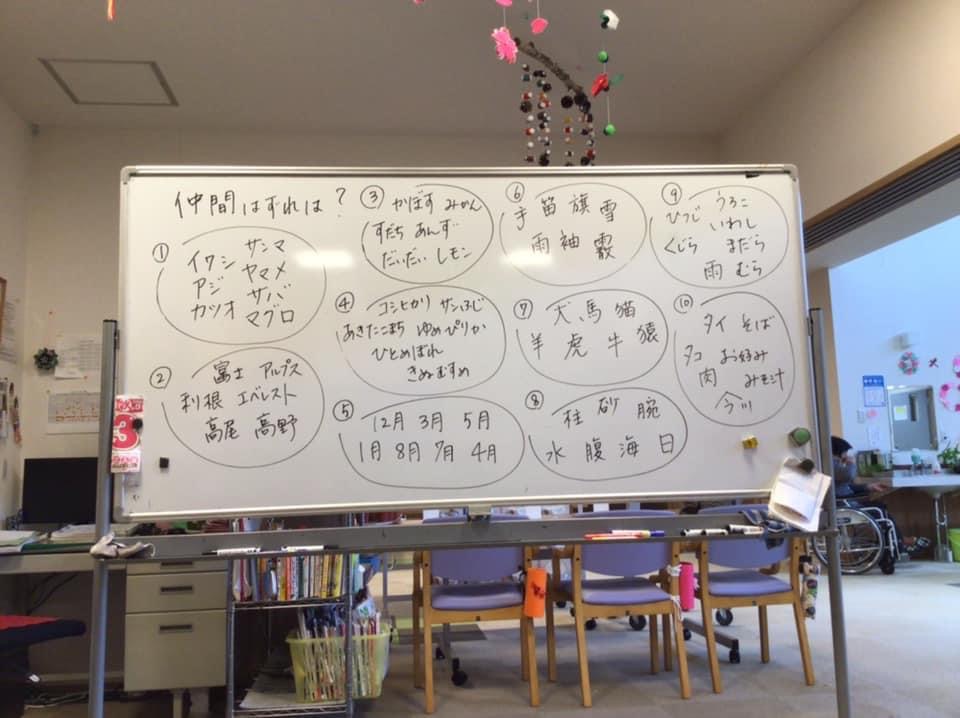 仲間はずれは?
①
イワシ サンマ
アジ ヤマメ
カツオ サバ
マグロ
②
富士 アルプス
利根 エベレスト
高尾 高野
③
かぼす みかん
すだち あんず
だいだい レモン
④
コシヒカリ サンふじ
あきたこまち ゆめぴりか
ひとめぼれ
きぬむすめ
⑤
12月 3月 5月
1月 8月 7月 4月
⑥
手 笛 旗 雪
雨 袖 霰
⑦
犬 馬 猫
羊 虎 牛 猿
⑧
柱 砂 腕
水 腹 海 日
⑨
ひつじ うろこ
いわし
くじら まだら
雨 むら
⑩
タイ そば
タコ お好み
肉 みそ汁
今川
3